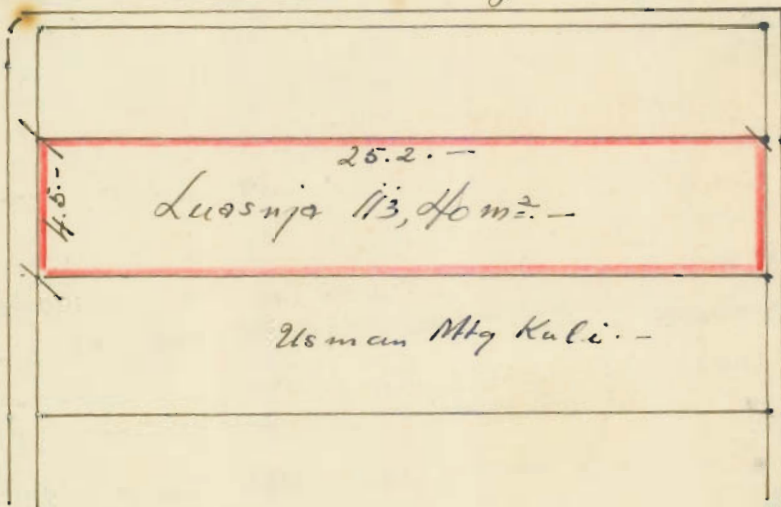 25.2.-
4.5.-
Luasnja 113,40 m².-
Usman Mtg Kuli.-